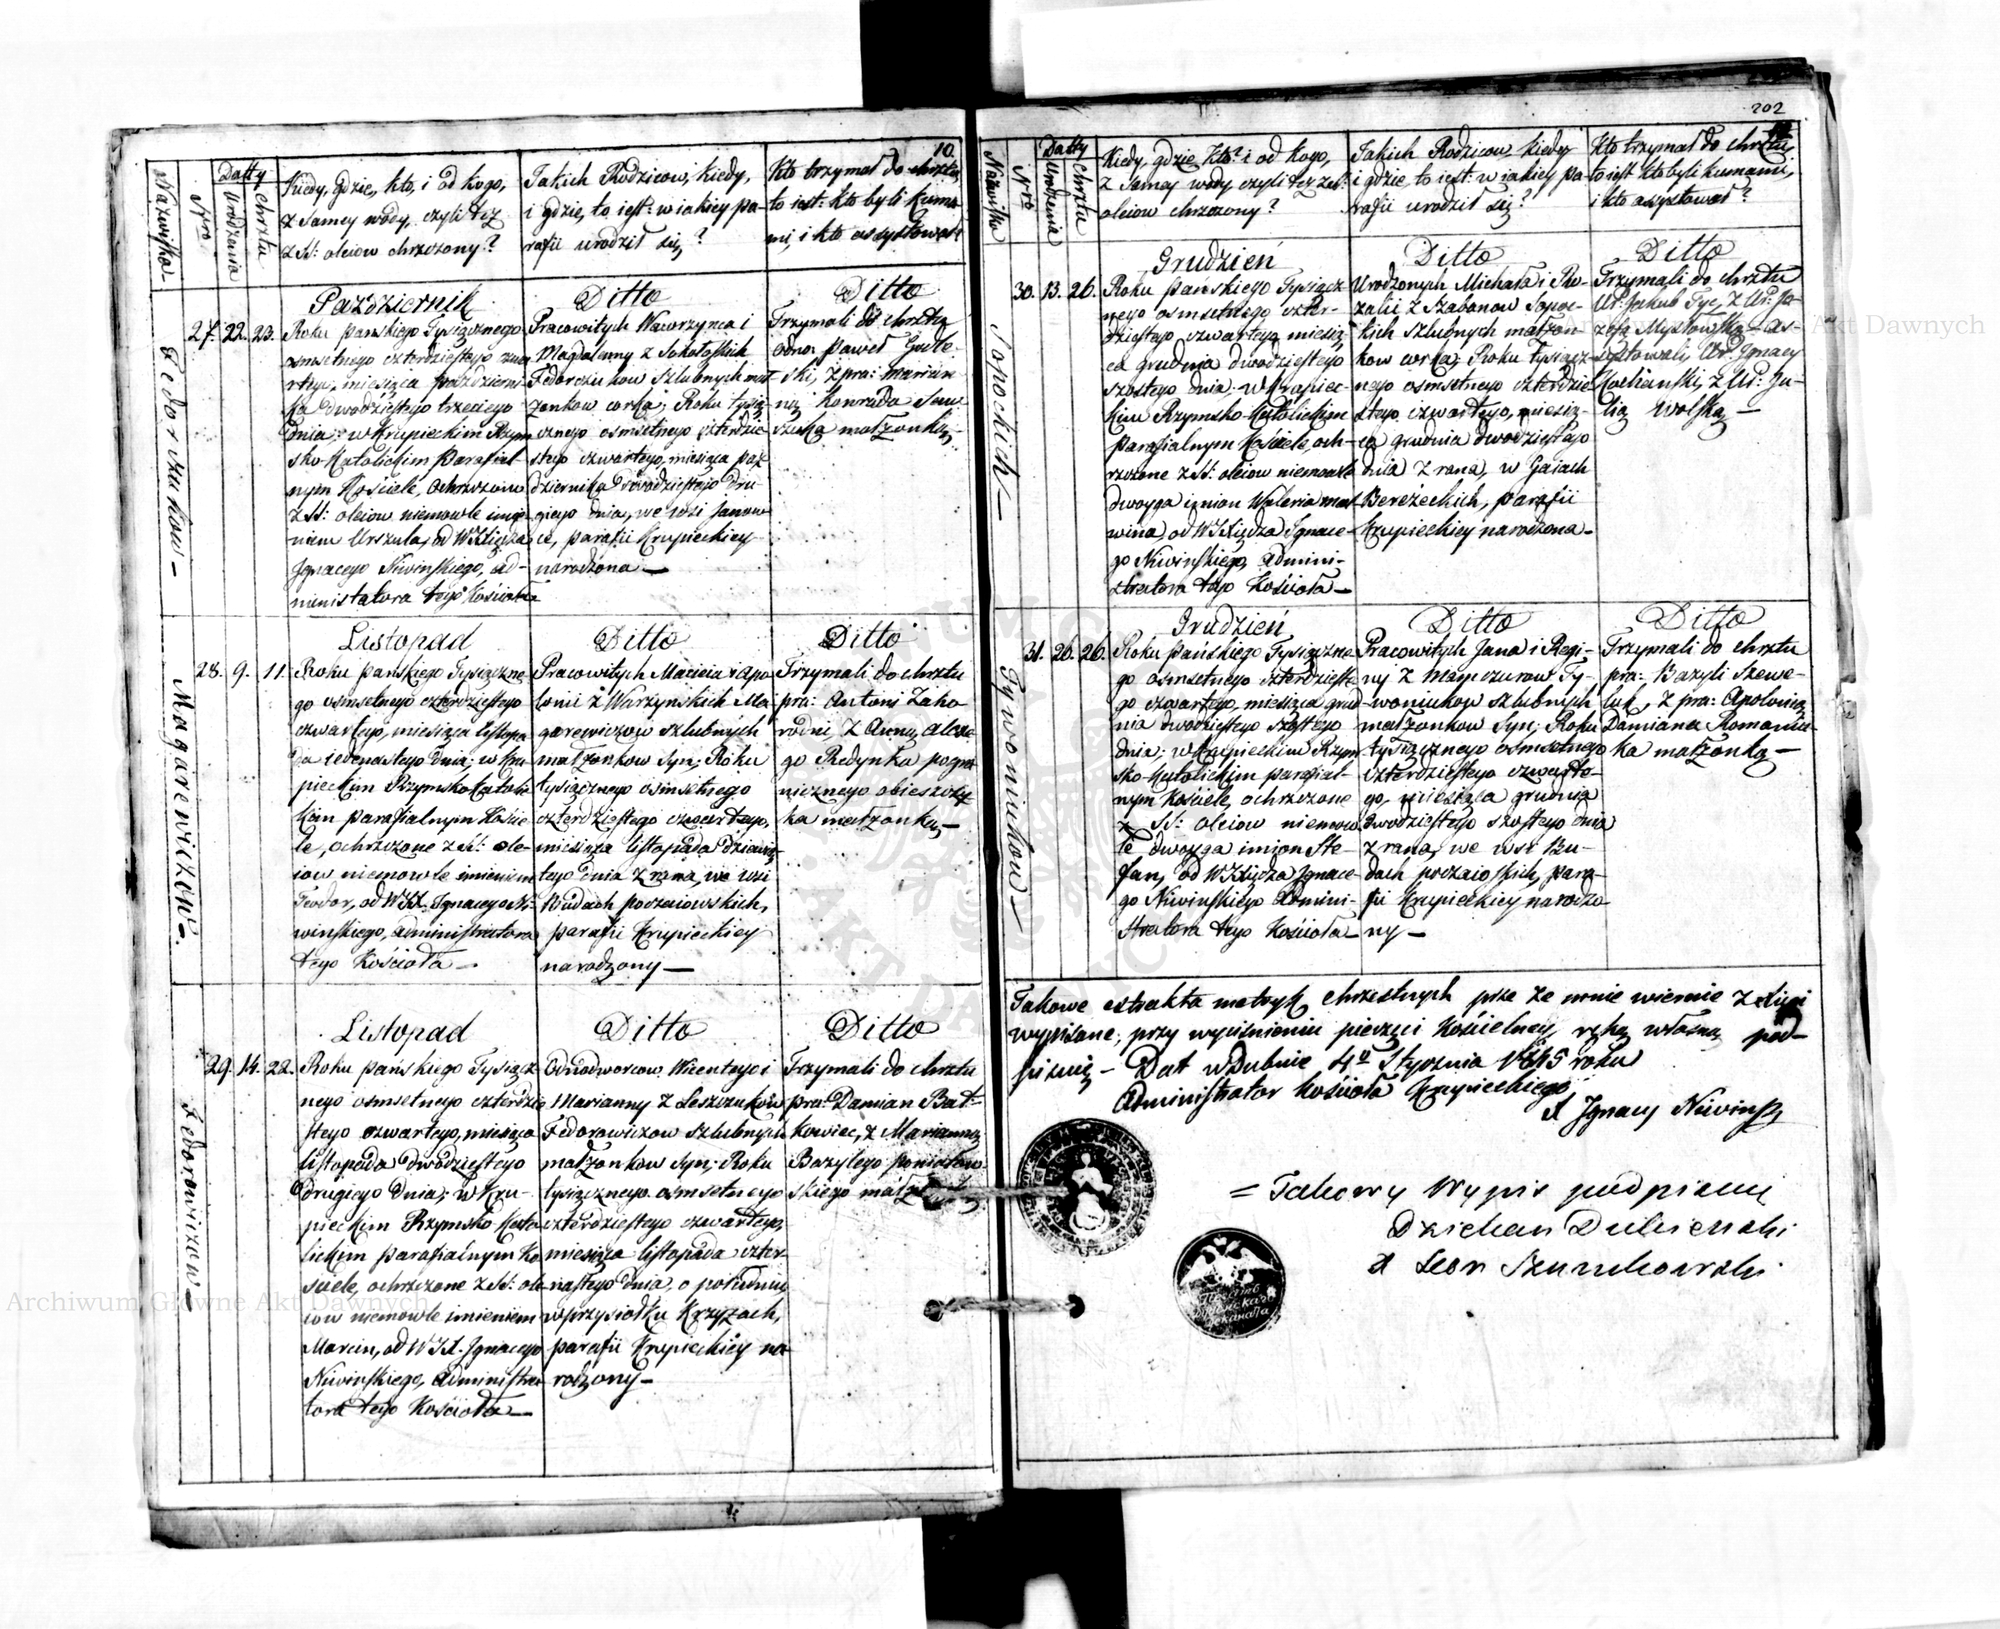 10.
Nazwiska
Nro
Datty
Urodzenia
Chrztu
Kiedy, gdzie, kto, i od kogo,
z samey wody, czyli też
z SS: oleiow chrzczony?
Jakich Rodzicow, kiedy,
i gdzie, to iest: w iakiey pa-
rafii urodził się?
Kto trzymał do chrztu,
to iest: kto byli Kuma-
mi, i kto assystował
Fedorczukow —
27. 22. 23.
Pazdziernik
Roku Pańskiego Tysiącznego
osmsetnego czterdziestego czwa-
rtego, miesiąca Pazdzierni-
ka dwodziestego trzeciego
dnia; w Krupieckim Rzym-
sko-Katolickim Parafial-
nym Kościele, ochrzczone
z SS: oleiow niemowle imie-
niem Urszula, od W.X. Xiędza
Ignacego Niwinskiego, ad-
ministratora tego Kościoła
Ditto
Pracowitych Wawrzynca i
Magdaleny z Sokołoskich
Fedorczukow szlubnych mał-
żonkow corka; Roku tysią-
cznego osmsetnego czterdzie-
stego czwartego, miesiąca paz-
dziernika dwodziestego dru-
giego dnia, we wsi Janow-
ce, parafii Krupieckiey
narodzona —
Ditto
Trzymali do chrztu
pra: Paweł
ski, z pra: Marcian-
ną Konrada Saw-
czuka małżonką —
Magarewiczow —
28. 9. 11.
Listopad
Roku Pańskiego Tysiączne-
go osmsetnego czterdziestego
czwartego, miesiąca listopa-
da iedenastego dnia; w Kru-
pieckim Rzymsko Katoli-
kim parafialnym Koście-
le, ochrzczone z SS: ole-
iow niemowle imieniem
Teodor, od W.XX. Ignacego Ni-
winskiego, administratora
tego Kościoła —
Ditto
Pracowitych Macieia i Apo-
lonii z Warzynskich Ma-
garewiczow szlubnych
małżonkow Syn; Roku
tysiącznego osmsetnego
czterdziestego czwartego,
miesiąca listopada dziewią-
tego dnia z rana, we wsi
Budach poczaiowskich,
parafii Krupieckiey
narodzony —
Ditto
Trzymali do chrztu
pra: Antoni Zaho-
rodni, z Anną Alexe-
go Redynka pogra-
nicznego obieszczy-
ka małżonką —
Fedorowiczow —
29. 14. 22.
Listopad
Roku Pańskiego Tysiącz-
nego osmsetnego czterdzie-
stego czwartego, miesiąca
listopada dwodziestego
drugiego dnia; w Kru-
pieckim Rzymsko Kato-
lickim parafialnym Ko-
sciele, ochrzczone z SS: ole-
iow niemowle imieniem
Marcin, od W.XX. Ignacego
Niwinskiego, administra-
tora tego Kościoła —
Ditto
Odnodworcow Wicentego i
Marianny z Leszczukow
Fedorowiczow szlubnych
małżonkow Syn; Roku
tysiącznego osmsetnego
czterdziestego czwartego,
miesiąca listopada czter-
nastego dnia, o południu
w przysiołku Krzyżach,
parafii Krupieckiey na-
rodzony —
Ditto
Trzymali do chrztu
pra: Damian But-
kowiec, z Marianną
Bazylego poniatow-
skiego
202
Nazwiska
Nro
Datty
Urodzenia
Chrztu
Kiedy, gdzie, Kto? i od kogo,
z samey wody czyli też z SS:
oleiow chrzczony?
Jakich Rodzicow, kiedy
i gdzie, to iest: w iakiey pa-
rafii urodził się?
Kto trzymał do chrztu,
to iest kto byli kumami,
i kto assystował?
Sopockich —
30. 13. 26.
Grudzień
Roku Pańskiego Tysiącz-
nego osmsetnego czter-
dziestego czwartego miesią-
ca grudnia dwodziestego
szostego dnia, w Krupiec-
kim Rzymsko-Katolickim
Parafialnym Kościele, och-
rzczone z SS: oleiow niemowle
dwoyga imion Waleria mal-
wina, od W.X. Xiędza Ignace-
go Niwinskiego, admini-
stratora tego Kościoła —
Ditto
Urodzonych Michała i Ro-
zalii z Szabanow Sopoc-
kich szlubnych małżon-
kow corka; Roku tysiącz-
nego osmsetnego czterdzie-
stego czwartego, miesią-
ca grudnia dwodziestego
dnia z rana, w Gaiach
Bereżeckich, parafii
Krupieckiey narodzona —
Ditto
Trzymali do chrztu
Ur: Jakub Tyc, z Ur: Jo-
zefą Mysłowską — as-
systowali Ur: Ignacy
Kochanski, z Ur: Ju-
lią Wolską —
Tywoniukow —
31. 26. 26.
Grudzień
Roku Pańskiego Tysiączne-
go osmsetnego czterdzieste-
go czwartego, miesiąca grud-
nia dwodziestego szostego
dnia; w Krupieckim Rzym-
sko-Katolickim parafial-
nym Kościele, ochrzczone
z SS: oleiow niemow-
le dwoyga imion Ste-
fan, od W.X. Xiędza Ignace-
go Niwinskiego Admini-
stratora tego Kościoła —
Ditto
Pracowitych Jana i Regi-
ny z Ty-
woniukow szlubnych
małżonkow Syn; Roku
tysiącznego osmsetnego
czterdziestego czwarte-
go, miesiąca grudnia
dwodziestego szostego dnia
z rana, we wsi Bu-
dach poczaioskich, para-
fii Krupieckiey narodzo-
ny —
Ditto
Trzymali do chrztu
pra: Bazyli Szewe-
luk, z pra: Apolonią
Damiana Romaniu-
ka małżonką —
Takowe extrakta metryk chrzestnych prze ze mnie wiernie z xięgi
wypisane, przy wyciśnieniu pieczęci Kościelney, ręką własną pod-
pisuię — Dat w Dubnie 4º Stycznia 1845 roku
Administrator Kościoła Krupieckiego
X Ignacy Niwinski
= Takowy Wypis podpisuię
Dziekan Dubienski
X Leon
Archiwum Główne Akt Dawnych
Akt Dawnych